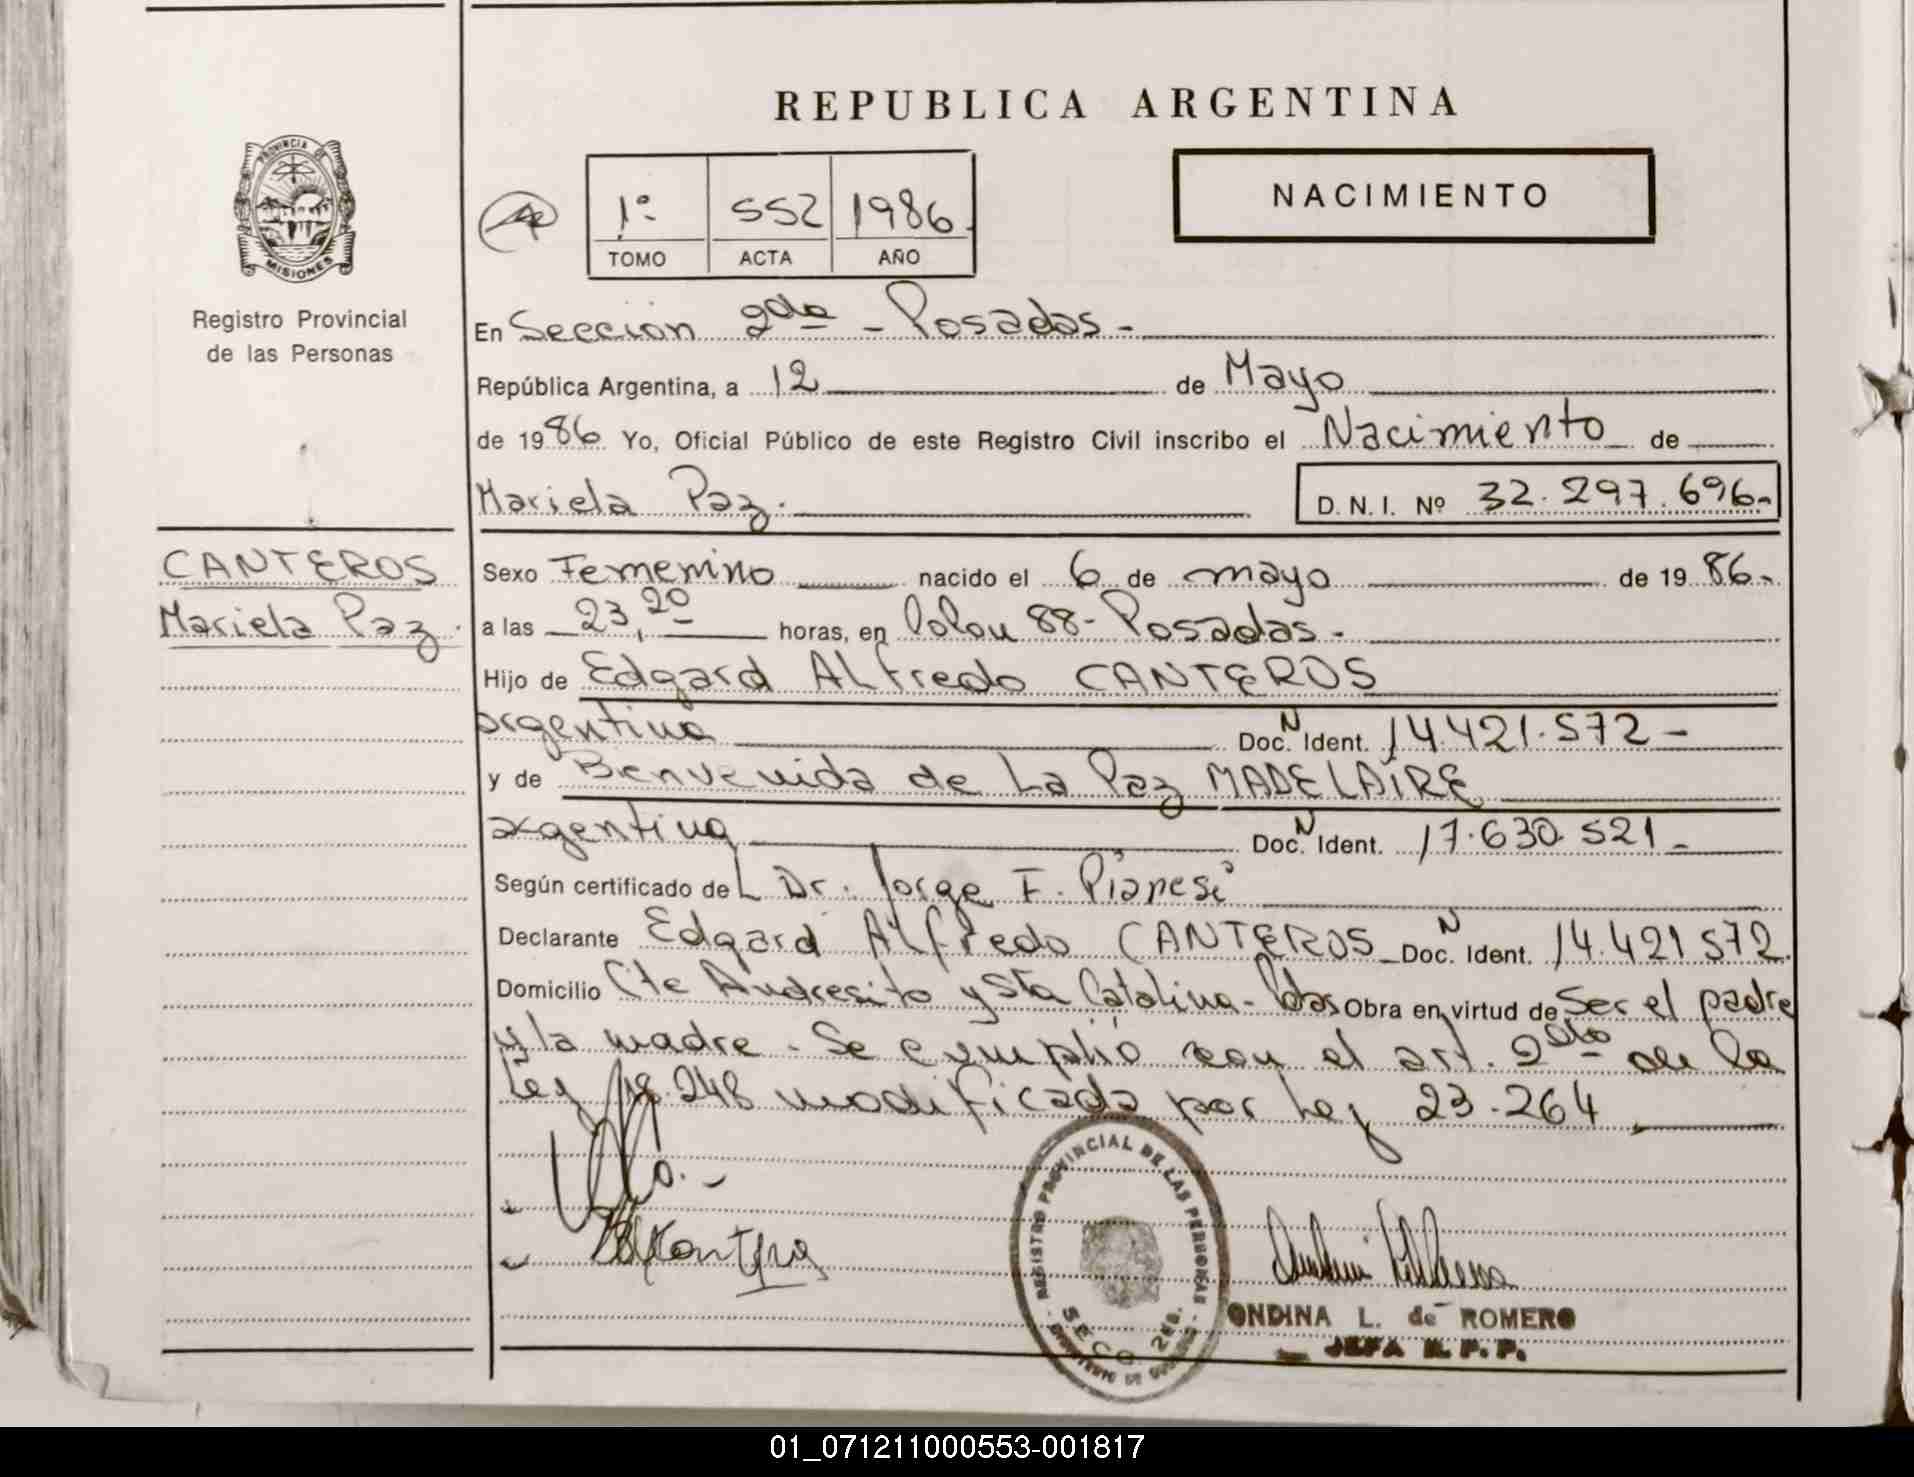 REPUBLICA ARGENTINA
PROVINCIA DE
MISIONES
Registro Provincial
de las Personas
1º 552 1986
TOMO ACTA AÑO
NACIMIENTO
En Sección 2da - Posadas -
República Argentina, a 12 de Mayo
de 1986 Yo, Oficial Público de este Registro Civil inscribo el Nacimiento de
Mariela Paz. D. N. I. Nº 32.297.696-
CANTEROS
Mariela Paz.
Sexo Femenino nacido el 6 de mayo de 1986-
a las 23,20 horas, en Colon 88- Posadas -
Hijo de Edgard Alfredo CANTEROS
argentina Doc. N Ident. 14.421.572-
y de Bienvenida de La Paz MADELAIRE
argentina Doc. N Ident. 17.630.521-
Según certificado de L Dr. Jorge F. Pianesi
Declarante Edgard Alfredo CANTEROS - Doc. N Ident. 14.421.572.
Domicilio Cte Andresito y Sta Catalina - Pdas Obra en virtud de Ser el padre
y la madre - Se cumplió con el art. 2do de la
Ley 18.248 modificada por Ley 23.264
REGISTRO PROVINCIAL DE LAS PERSONAS
SECC. 2da.
ONDINA L. de ROMERO
JEFA R. P. P.
01_071211000553-001817